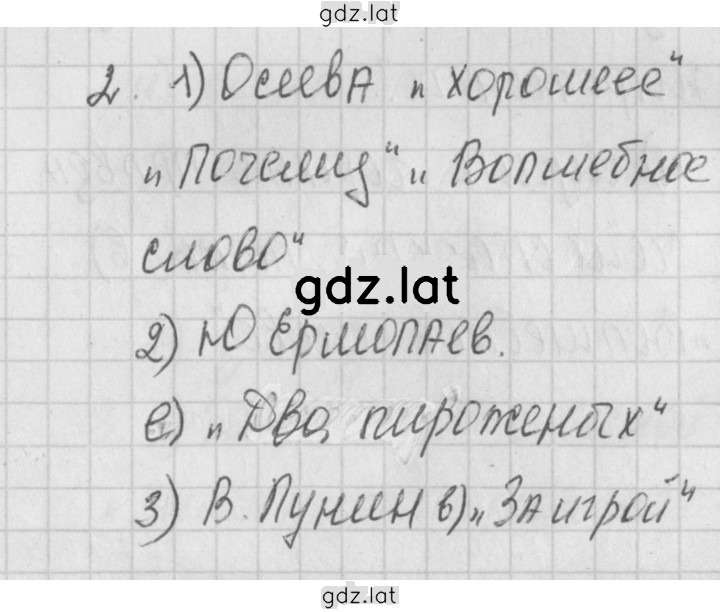 gdz.lat
2. 1) Осеева „Хорошее“
„Почему“ „Волшебное
слово“
gdz.lat
2) Ю Ермолаев.
е) „Два пироженых“
3) В. Лунин в) „За игрой“
gdz.lat